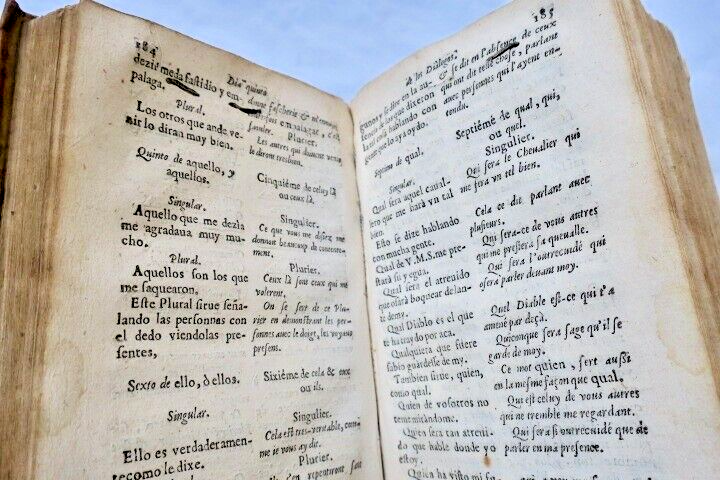 184
Dia quinto
dezir me da fastidio y em-
palaga.
Plural.
Los otros que ande ve-
nir lo diran muy bien.
Quinto de aquello, y
aquellos.
Singular.
Aquello que me dezia
me agradaua muy mu-
cho.
Plural.
Aquellos son los que
me saquearon.
Este Plural sirue seña-
lando las personnes con
el dedo viendolas pre-
sentes,
Sexto de ello, ò ellos.
Singular.
Ello es verdaderamen-
te como le dixe.
donne fascherie &
Plurier.
Les autres qui doiuent venir
le diront tresbien.
Cinquiéme de celuy là
ou ceux là.
Singulier.
Ce que vous me disiez me
donnoit beaucoup de contente-
ment.
Plurier.
Ceux là sont ceux qui me
volerent.
On se sert de ce Plu-
rier en demonstrant les per-
sonnes auec le doigt, les voyans
presens.
Sixiéme de cela &
ou ils.
Singulier.
Cela est tres-veritable, com-
me ie vous ay dit.
Plurier.
repentiront
185
de los Dialogos.
guno y se dize en la au-
sencia de los que dixeron
la tal hablando con
gente que lo ayo oydo.
Septimo de qual.
Singular.
Qual sera aquel caual-
lero que me hará vn tal
bien.
Esto se dize hablando
con mucha gente.
Qual de V. M.S. me pre-
stará su yegua.
Qual sera el atreuido
que osará boquear delan-
te de my.
Qual Diablo es el que
te ha traydo por aca.
Qualquiera que fuere
sabio guardese de my.
Tambien sirue, quien,
como qual.
Quien de vosotros no
tema mirandome.
Quien sera tan atreui-
do que hable donde yo
estoy.
Quien ha visto mi
& se dit en l'absence de ceux
qui ont dit telle chose, parlant
auec personnes qui l'ayent en-
tendu.
Septiéme de qual, qui,
ou quel.
Singulier.
Qui sera le Cheualier qui
me fera vn tel bien.
Cela ce dit parlant auec
plusieurs.
Qui sera-ce de vous autres
qui me prestera sa queualle.
Qui sera l'outrecuidé qui
osera parler deuant moy.
Quel Diable est-ce qui t'a
amené par deçà.
Quiconque sera sage qu'il se
garde de moy.
Ce mot quien, sert aussi
en la mesme façon que qual.
Qui est celuy de vous autres
qui ne tremble me regardant.
Qui sera si outrecuidé que de
parler en ma presence.